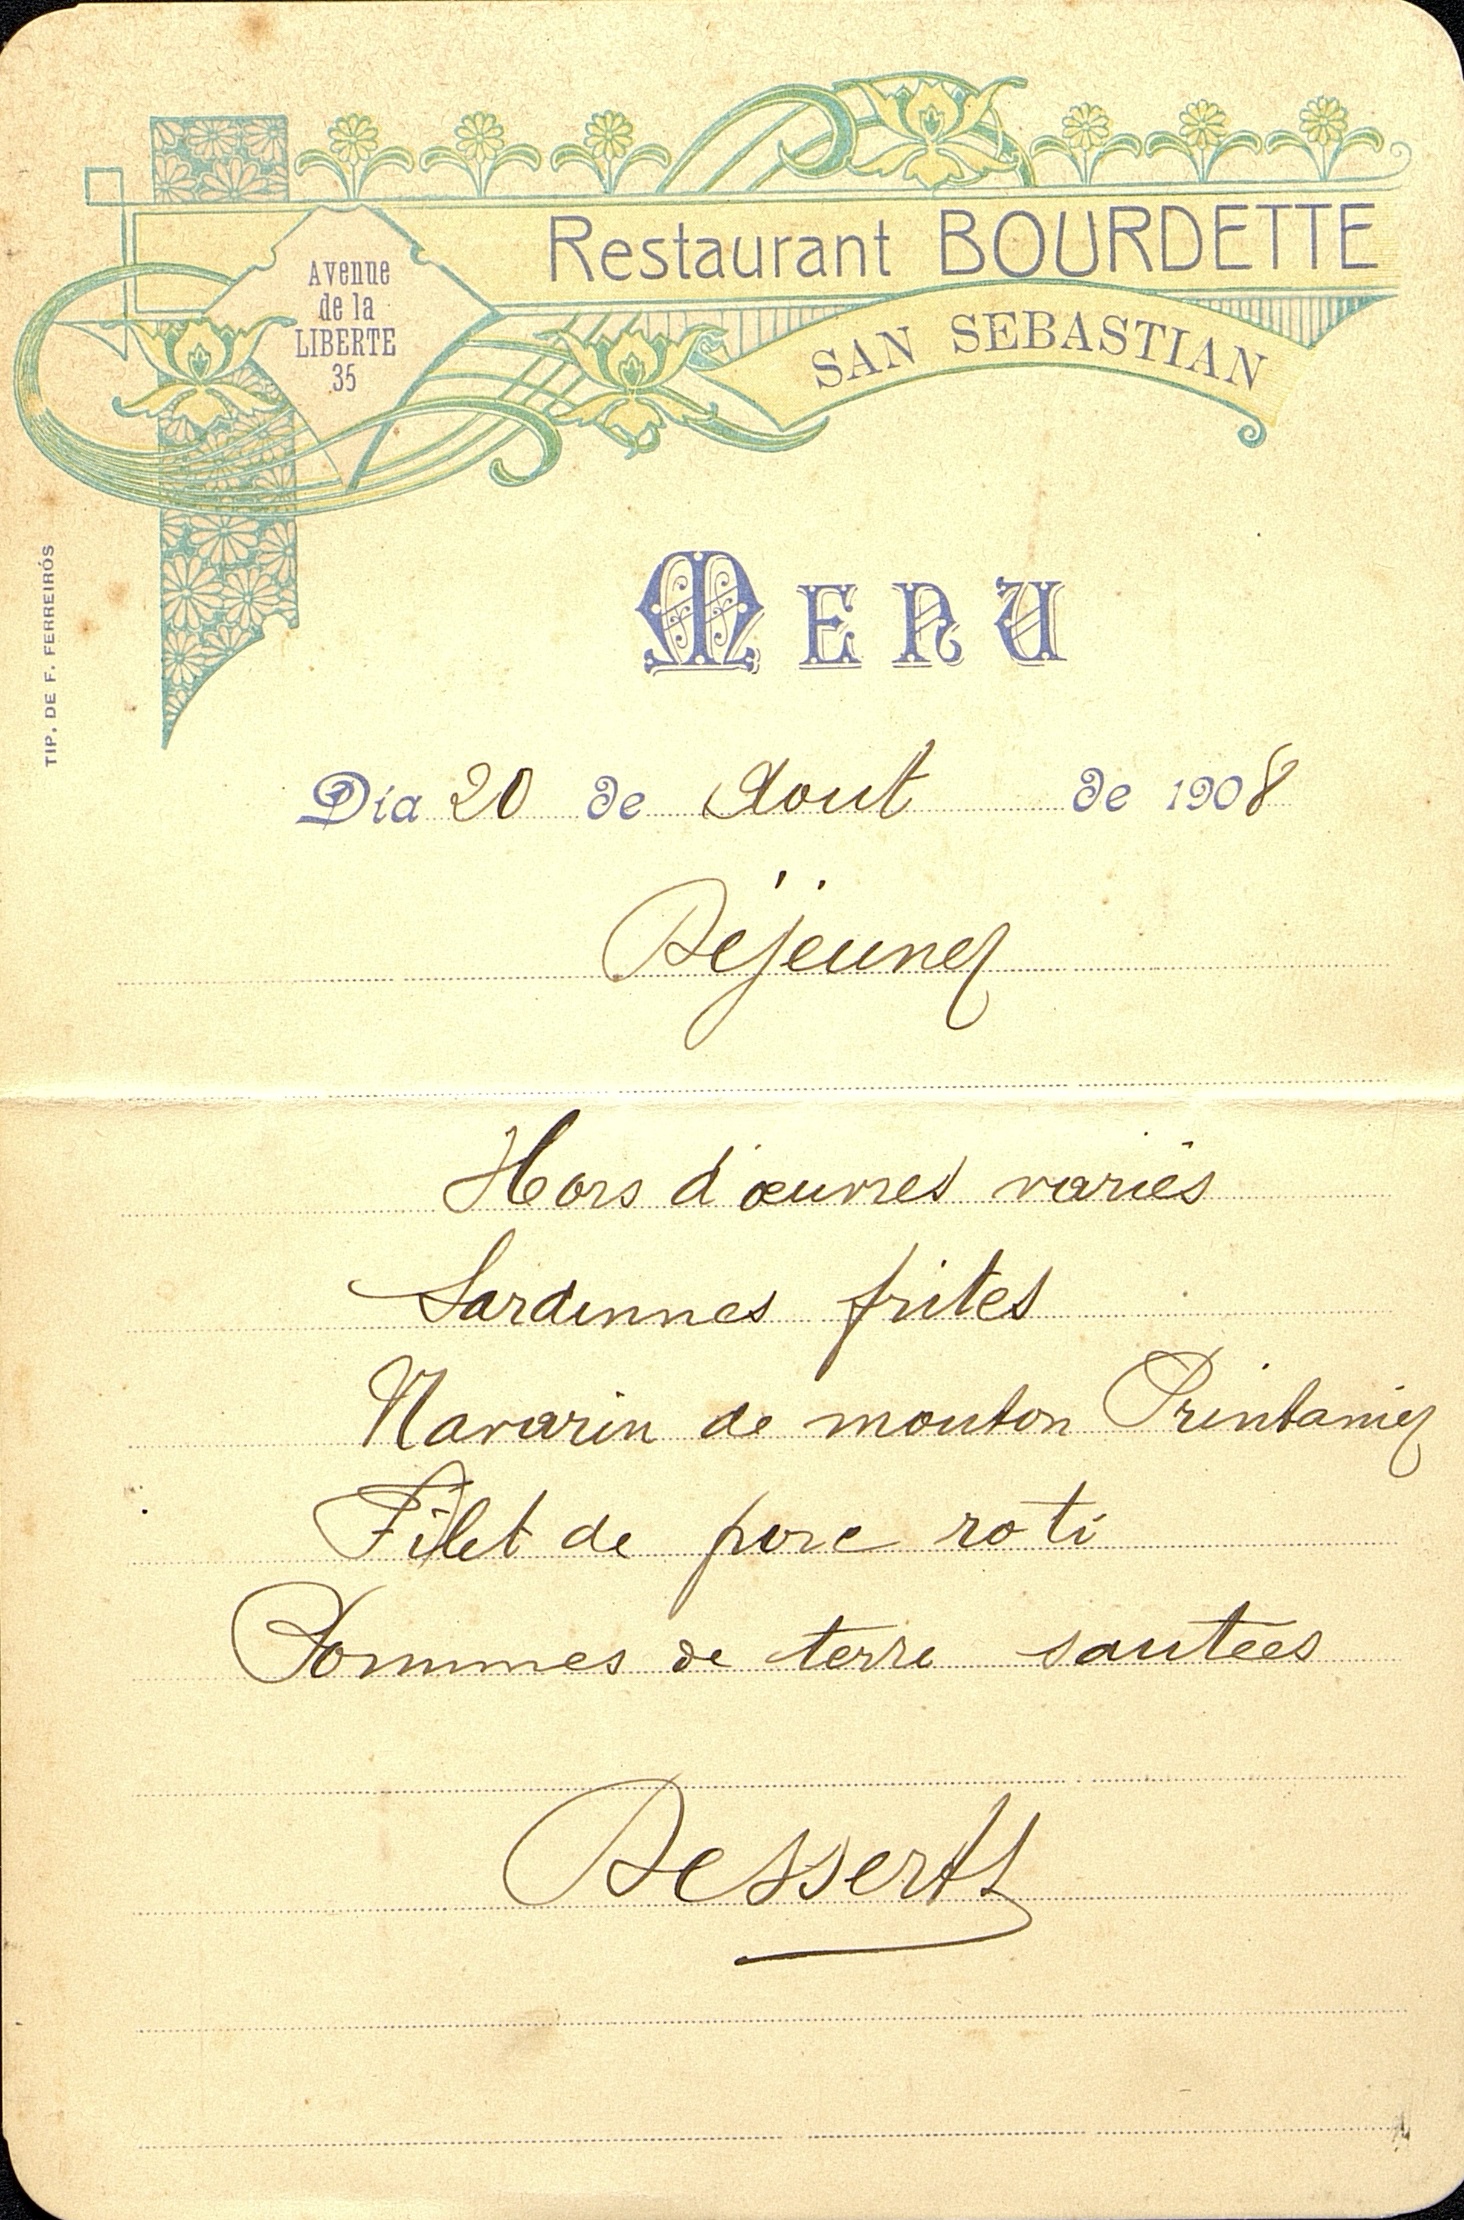 Restaurant BOURDETTE
SAN SEBASTIAN
Avenue
de la
LIBERTE
35
TIP. DE F. FERREIRÓS
MENU
Día 20 de Aout de 1908
Déjeuner
Hors d'œuvres variés
Sardinnes frites
Navarin de mouton Printanier
Filet de porc roti
Pommes de terre sautées
Desserts